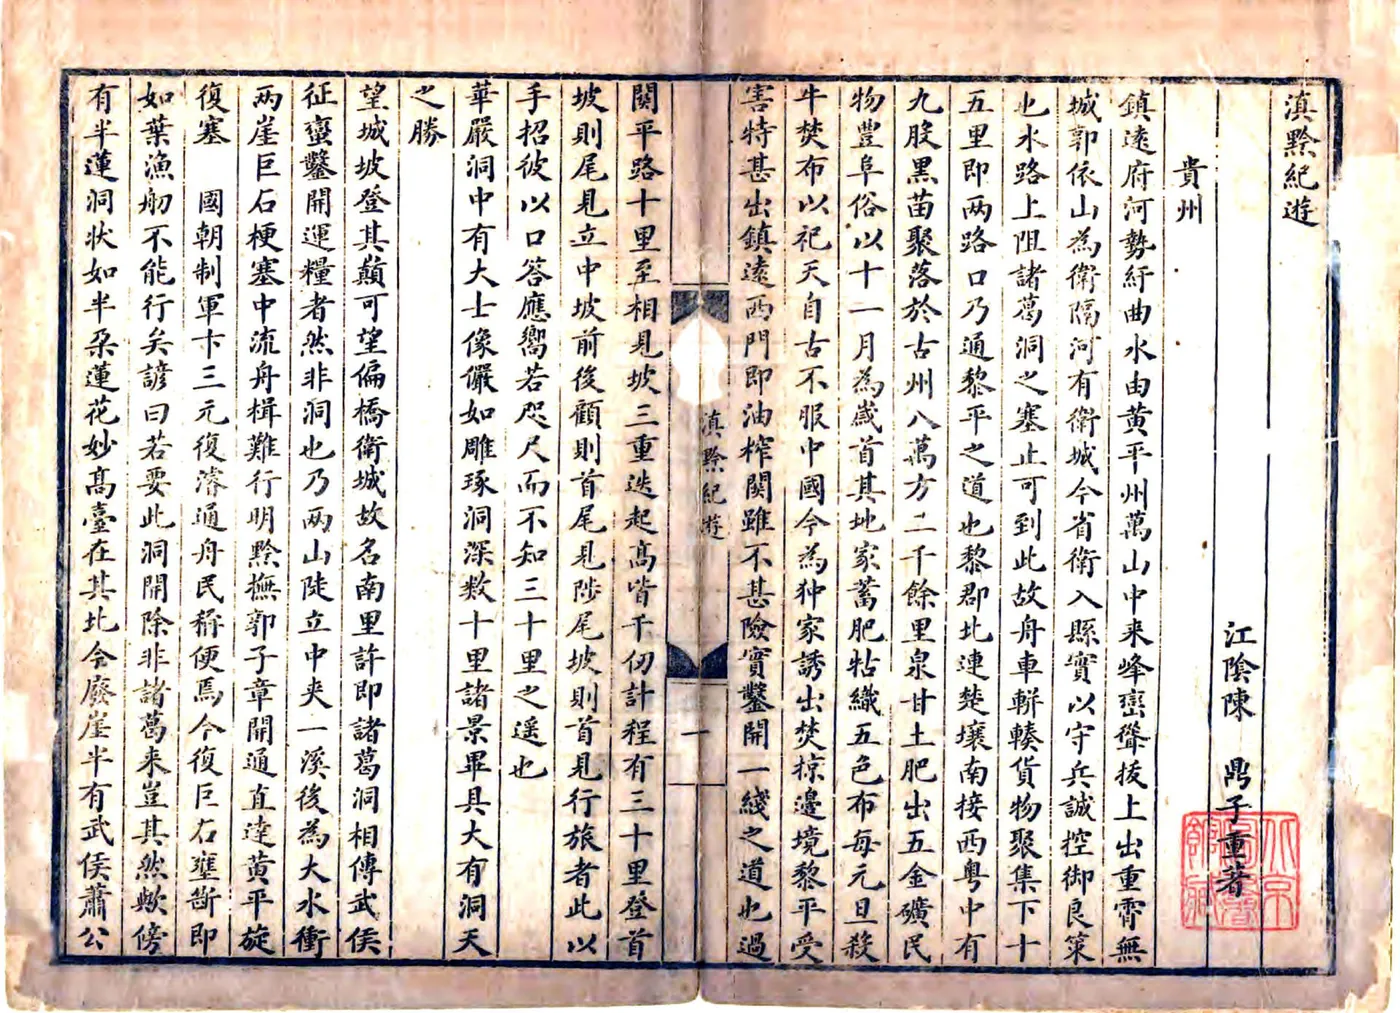 滇黔紀遊
江陰陳　鼎子重著
貴州
鎮遠府河勢紆曲水由黄平州萬山中来峰巒聳抜上出重霄無
城郭依山為衛隔河有衛城今省衛入縣實以守兵誠控御良策
也水路上阻諸葛洞之塞止可到此故舟車輧輳貨物聚集下十
五里即两路口乃通黎平之道也黎郡北連楚壤南接西粤中有
九股黒苗聚落於古州八萬方二千餘里泉甘土肥出五金礦民
物豊阜俗以十一月為歳首其地家蓄肥牯織五色布每元旦殺
牛焚布以祀天自古不服中國今為狆家誘出焚掠邊境黎平受
害特甚出鎮遠西門即油榨関雖不甚險實鑿開一綫之道也過
関平路十里至相見坡三重迭起高皆千仞計程有三十里登首
坡則尾見立中坡前後顧則首尾見陟尾坡則首見行旅者此以
手招彼以口答應嚮若咫尺而不知三十里之遥也
華嚴洞中有大士像儼如雕琢洞深数十里諸景畢具大有洞天
之勝
望城坡登其巔可望偏橋衛城故名南里許即諸葛洞相傳武侯
征蠻鑿開運糧者然非洞也乃两山陡立中夾一溪後為大水衝
两崖巨石梗塞中流舟楫難行明黔撫郭子章開通直達黄平旋
復塞　國朝制軍卞三元復濬通舟民称便焉今復巨石壅断即
如葉漁舠不能行矣諺曰若要此洞開除非諸葛来豈其然歟傍
有半蓮洞状如半朶蓮花妙髙臺在其北今廢崖半有武侯蕭公
滇黔紀遊
一